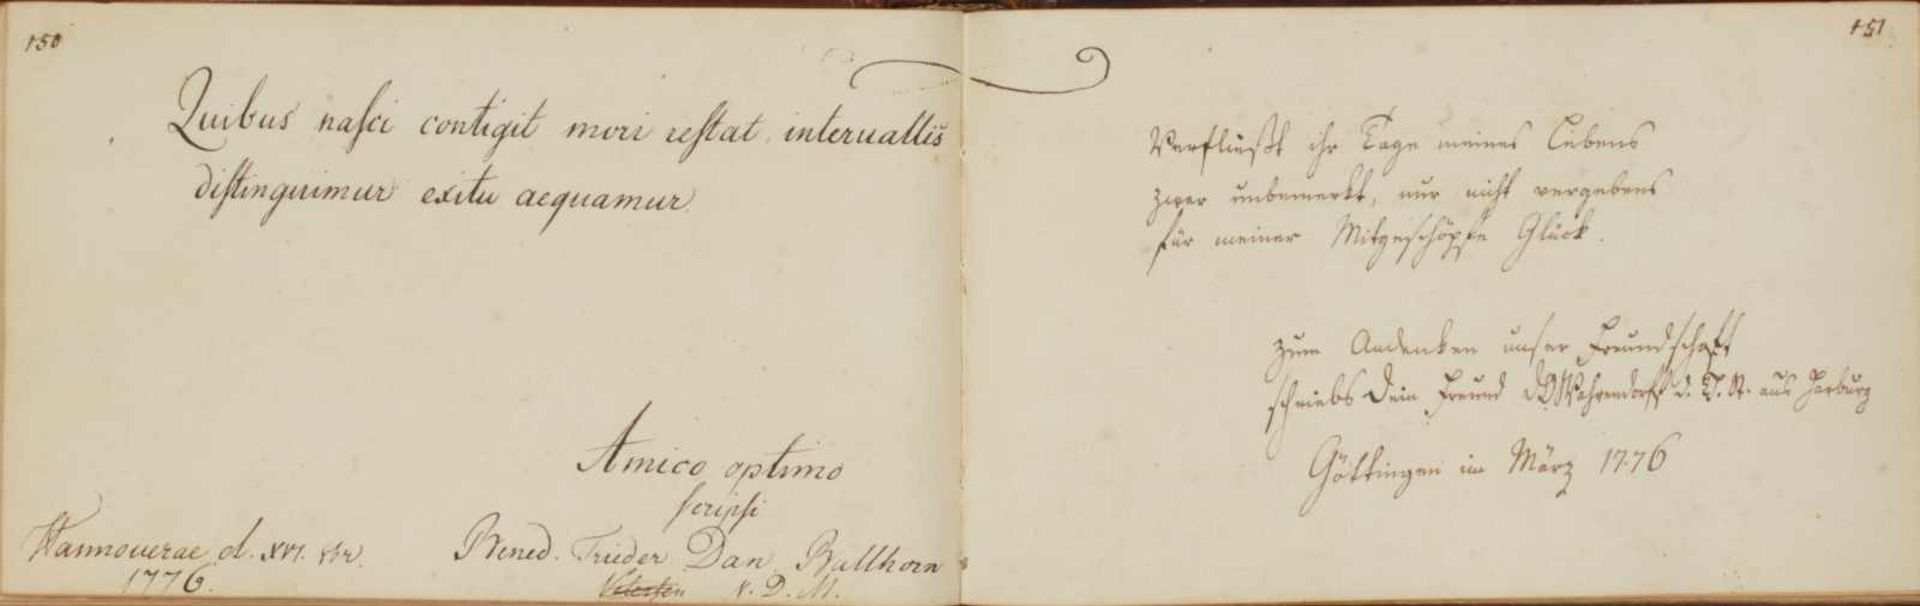 150
Quibus nasci contigit mori restat intervallis
distinguimur exitu aequamur.
Amico optimo
scripsi
Hannouerae d. XVI.
1776.
Bened. Frieder Dan Ballhorn
D. M.
151
Verfließt ihr Tage meines Lebens
zwar unbemerkt, nur nicht vergebens
für meiner Mitgeschöpfe Glück.
Zum Andenken unser Freundschaft
schriebs Dein Freund Wahrendorff d. aus Harburg
Göttingen im März 1776